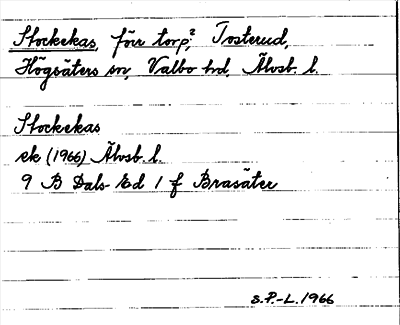 Stockekas, förr torp,² Tosterud,
Högsäters sn, Valbo hd, Älvsb. l.
Stockekas
ek (1966) Älvsb. l.
9 B Dals-Ed 1 f Brasäter
S.P.-L. 1966